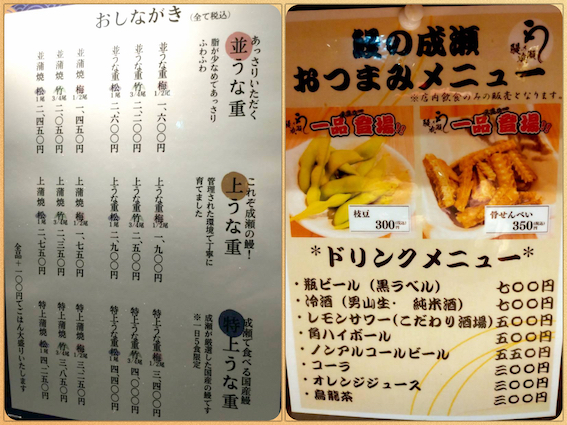 おしながき（全て税込）
あっさりいただく
並うな重
脂が少なめであっさり
ふわふわ
並うな重 梅 1/2尾 一、六〇〇円
並うな重 竹 3/4尾 二、二〇〇円
並うな重 松 1尾 二、六〇〇円
並蒲焼 梅 1/2尾 一、四五〇円
並蒲焼 竹 3/4尾 二、〇五〇円
並蒲焼 松 1尾 二、四五〇円
これぞ成瀬の鰻！
上うな重
管理された環境で丁寧に
育てました
上うな重 梅 1/2尾 一、九〇〇円
上うな重 竹 3/4尾 二、五〇〇円
上うな重 松 1尾 二、九〇〇円
上蒲焼 梅 1/2尾 一、七五〇円
上蒲焼 竹 3/4尾 二、三五〇円
上蒲焼 松 1尾 二、七五〇円
成瀬で食べる国産鰻
特上うな重
成瀬が厳選した国産の鰻です
※一日5食限定
特上うな重 梅 1/2尾 三、四〇〇円
特上うな重 竹 3/4尾 四、〇〇〇円
特上うな重 松 1尾 四、四〇〇円
特上蒲焼 梅 1/2尾 三、二五〇円
特上蒲焼 竹 3/4尾 三、八五〇円
特上蒲焼 松 1尾 四、二五〇円
全品＋一〇〇円でごはん大盛りいたします
鰻の成瀬
おつまみメニュー
※店内飲食のみの販売となります。
一品登場!!
枝豆
300円(税込)
一品登場!!
骨せんべい
350円(税込)
*ドリンクメニュー*
・瓶ビール（黒ラベル） 七〇〇円
・冷酒（男山生・ 純米酒） 七〇〇円
・レモンサワー(こだわり酒場) 五〇〇円
・角ハイボール 五五〇円
・ノンアルコールビール 五五〇円
・コーラ 三〇〇円
・オレンジジュース 三〇〇円
・烏龍茶 三〇〇円